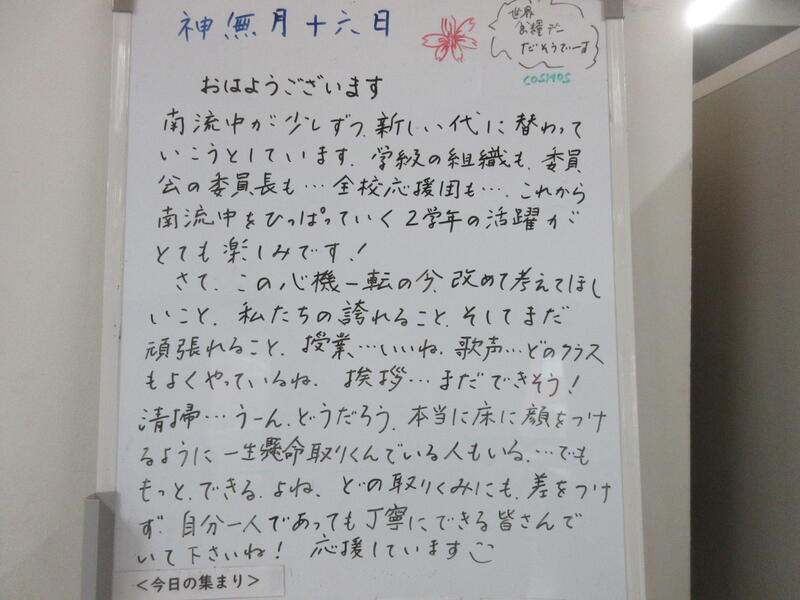 神無月十六日
世界
食糧デー
だそうでーす
COSMOS
おはようございます
南流中が少しずつ、新しい代に替わって
いこうとしています。学級の組織も、委員
会の委員長も…全校応援団も…。これから
南流中をひっぱっていく2学年の活躍が
とても楽しみです!
さて、この心機一転の今、改めて考えてほし
いこと、私たちの誇れること、そしてまだ
頑張れること、授業…いいね、歌声…どのクラス
もよくやっているね、挨拶…まだできそう!
清掃…うーん、どうだろう、本当に床に顔をつけ
るように一生懸命取りくんでいる人もいる、…でも
もっと、できる、よね、どの取りくみにも、差をつけ
ず、自分一人であっても丁寧にできる皆さんで
いて下さいね! 応援しています
<今日の集まり>